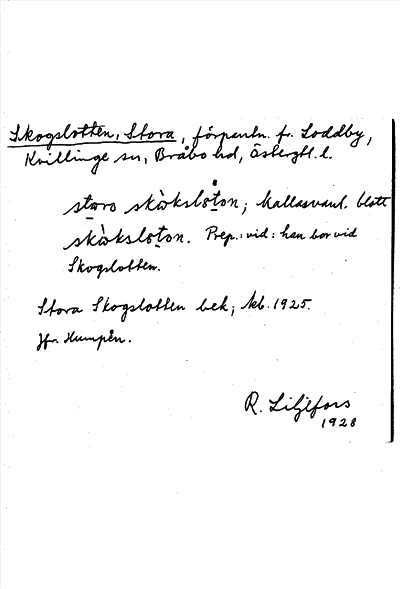 Skogslotten, Stora, förpantn. fr. Loddby,
Kvillinge sn, Bråbo hd, Östergtl. l.
stωro skὼkslo̊ton; kallas vanl. blott
skὼksloton. Prep.: vid: han bor vid
Skogslotten.
Stora Skogslotten bek; kb. 1925.
Jfr Humpån.
R. Liljefors
1928